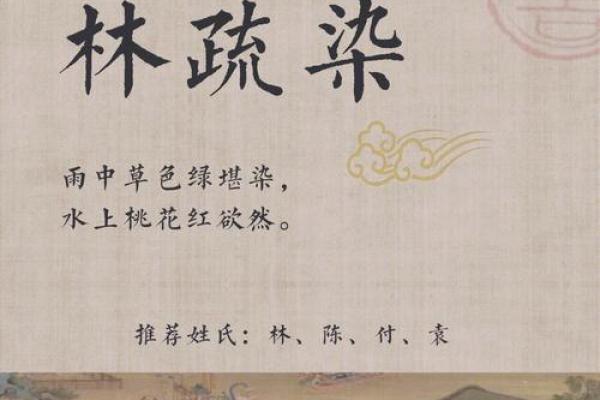 林疏染
雨中草色绿堪染，
水上桃花红欲然。
推荐姓氏：林、陈、付、袁